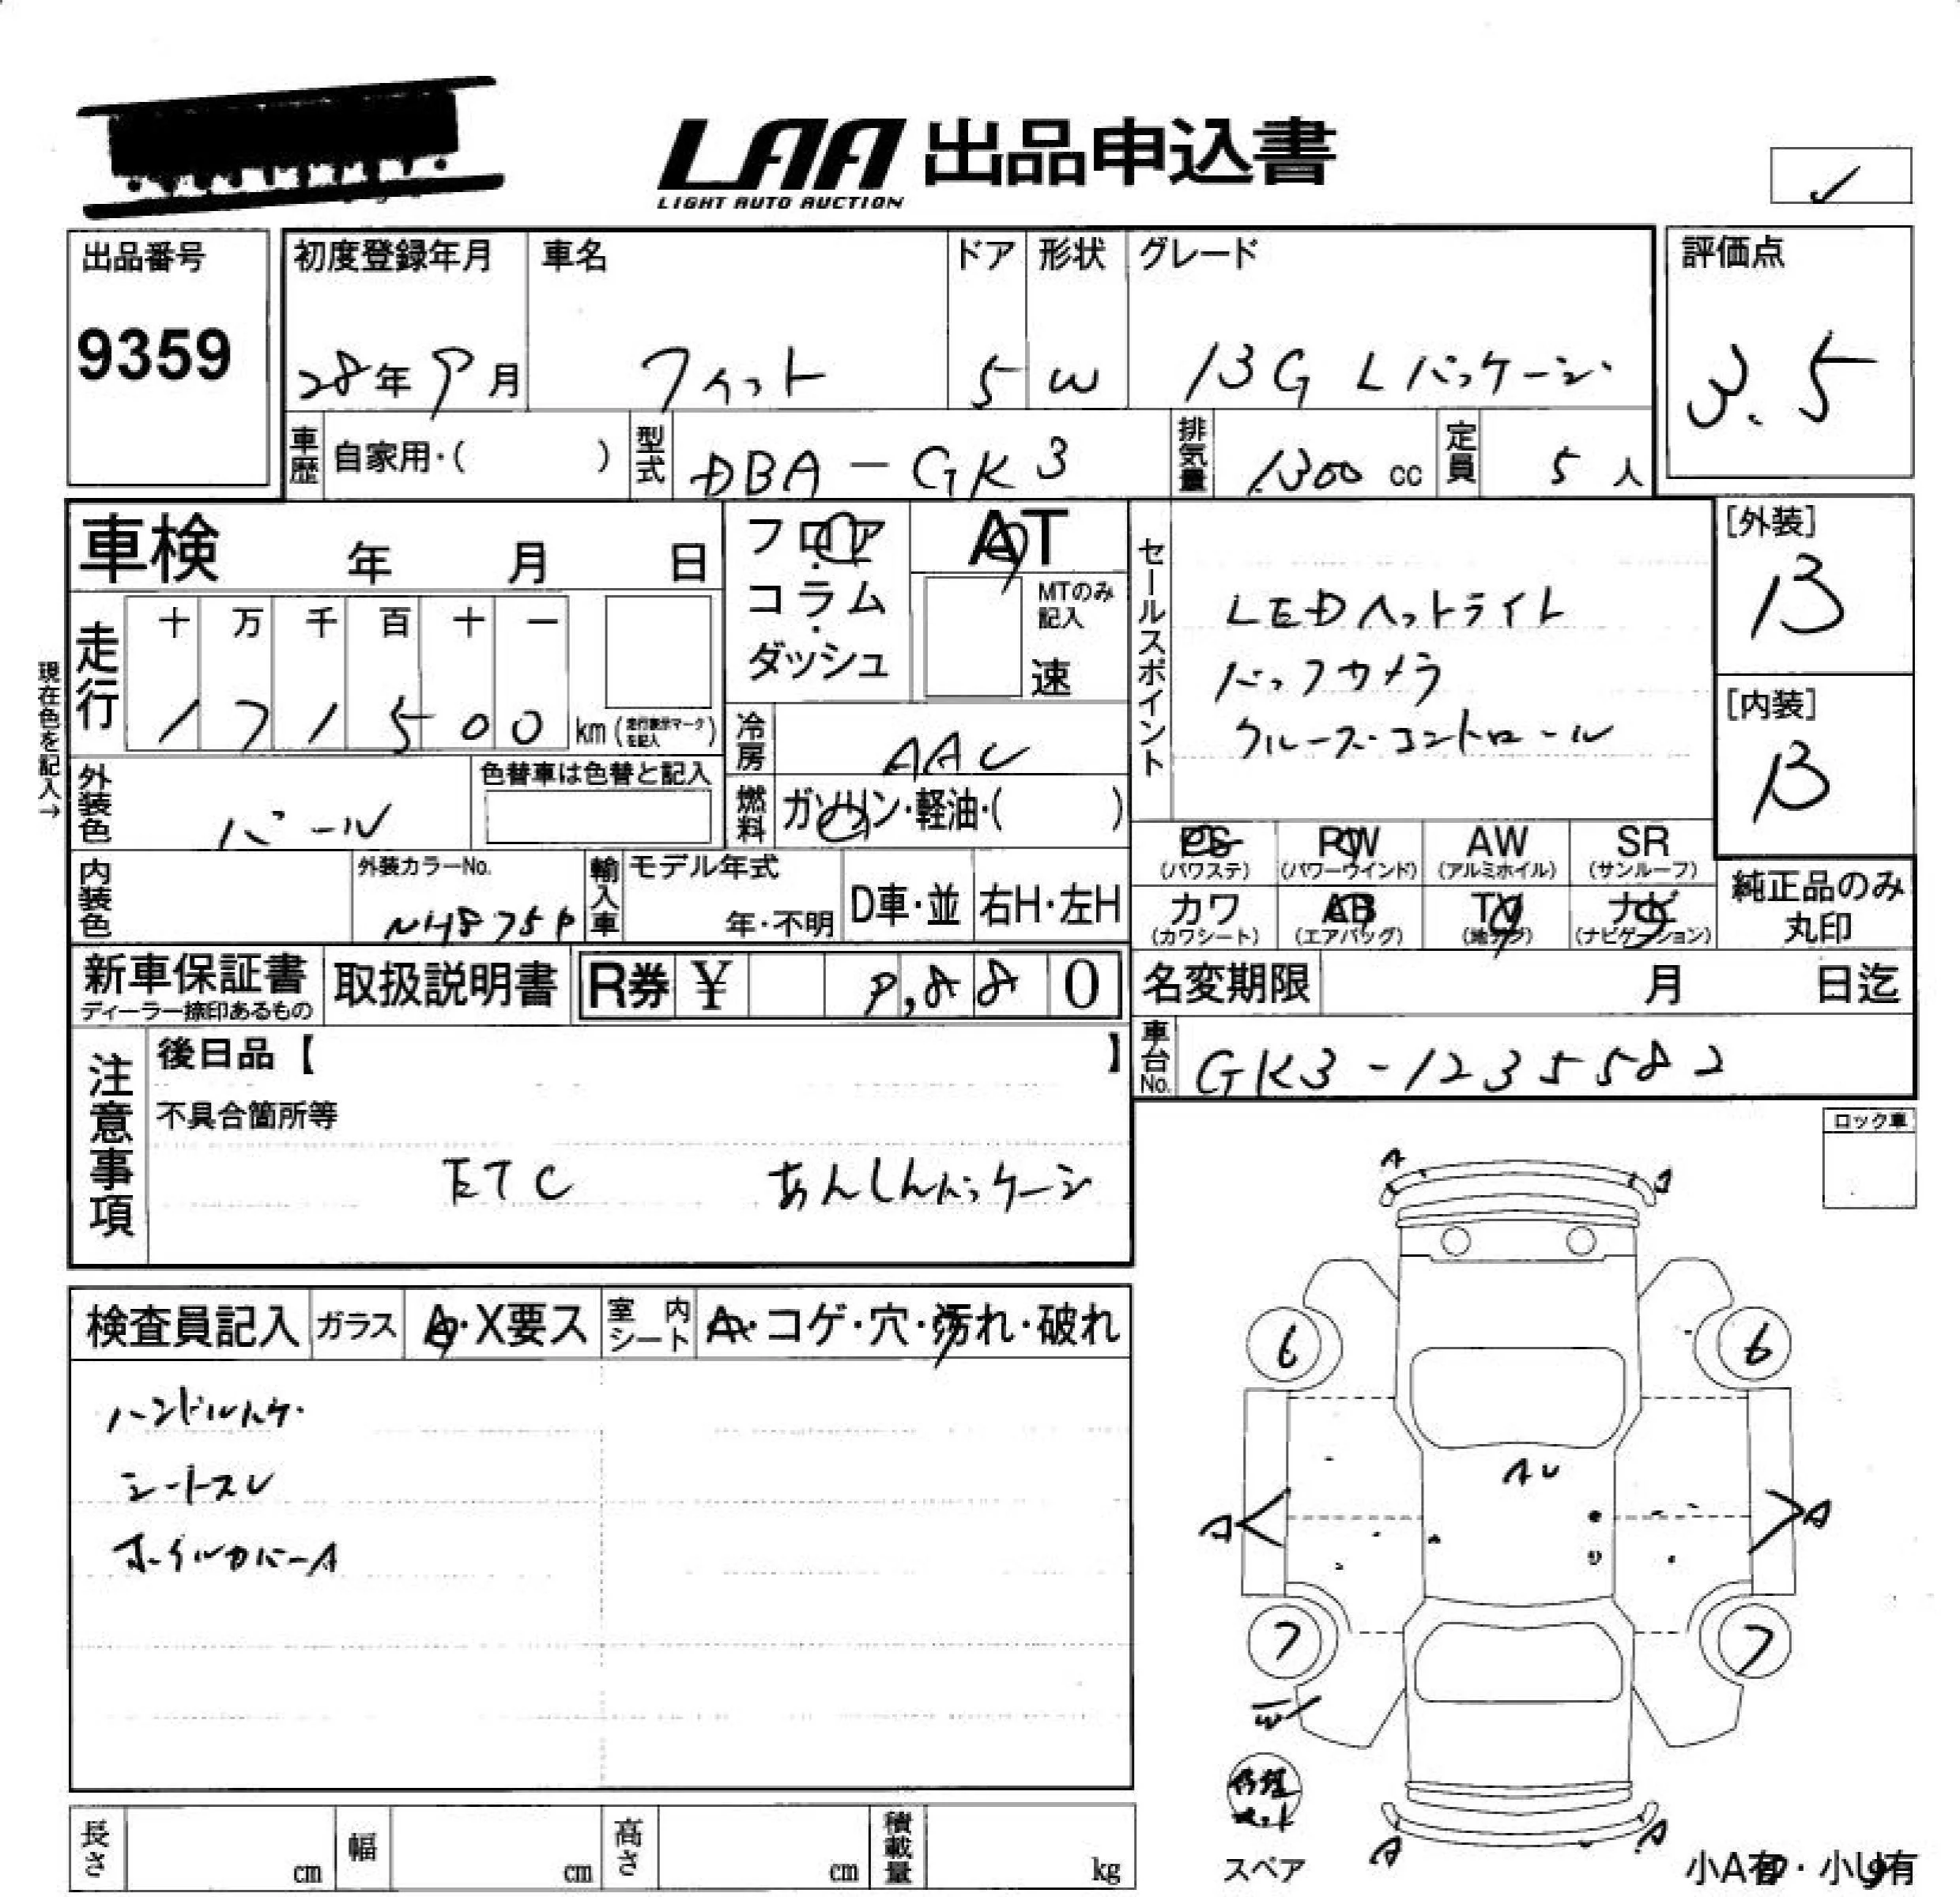 LAA 出品申込書
LIGHT AUTO AUCTION
出品番号
9359
初度登録年月
28年9月
車名
フィット
ドア
5
形状
W
グレード
13G Lパッケージ
評価点
3.5
車歴
自家用・( )
型式
DBA-GK3
排気量
1300 cc
定員
5 人
車検 年 月 日
フロア・コラム・ダッシュ
AT
MTのみ記入
速
セールスポイント
LEDヘットライト
バックカメラ
クルーズコントロール
[外装]
B
[内装]
B
現在色を記入→
走行
十 万 千 百 十 一
1 7 1 5 0 0 km (走行表示マークを記入)
冷房
AAC
燃料
ガソリン・軽油・( )
外装色
パール
色替車は色替と記入
内装色
外装カラーNo.
NH875P
輸入車
モデル年式
年・不明
D車・並
右H・左H
PS (パワステ)
PW (パワーウインド)
AW (アルミホイル)
SR (サンルーフ)
カワ (カワシート)
AB (エアバッグ)
TV (地デジ)
ナビ (ナビゲーション)
純正品のみ丸印
新車保証書
ディーラー捺印あるもの
取扱説明書
R券 ¥ 9,880
名変期限 月 日迄
車台No.
GK3-1235582
注意事項
後日品【 】
不具合箇所等
ETC あんしんパッケージ
ロック車
検査員記入
ガラス
A・X要ス
室内シート
A・コゲ・穴・汚れ・破れ
ハンドルハゲ
シートスレ
ホイルカバーA
A A
6 6
AU
A A
7 7
W
修理キット
スペア
A A
小A有・小U有
長さ cm
幅 cm
高さ cm
積載量 kg